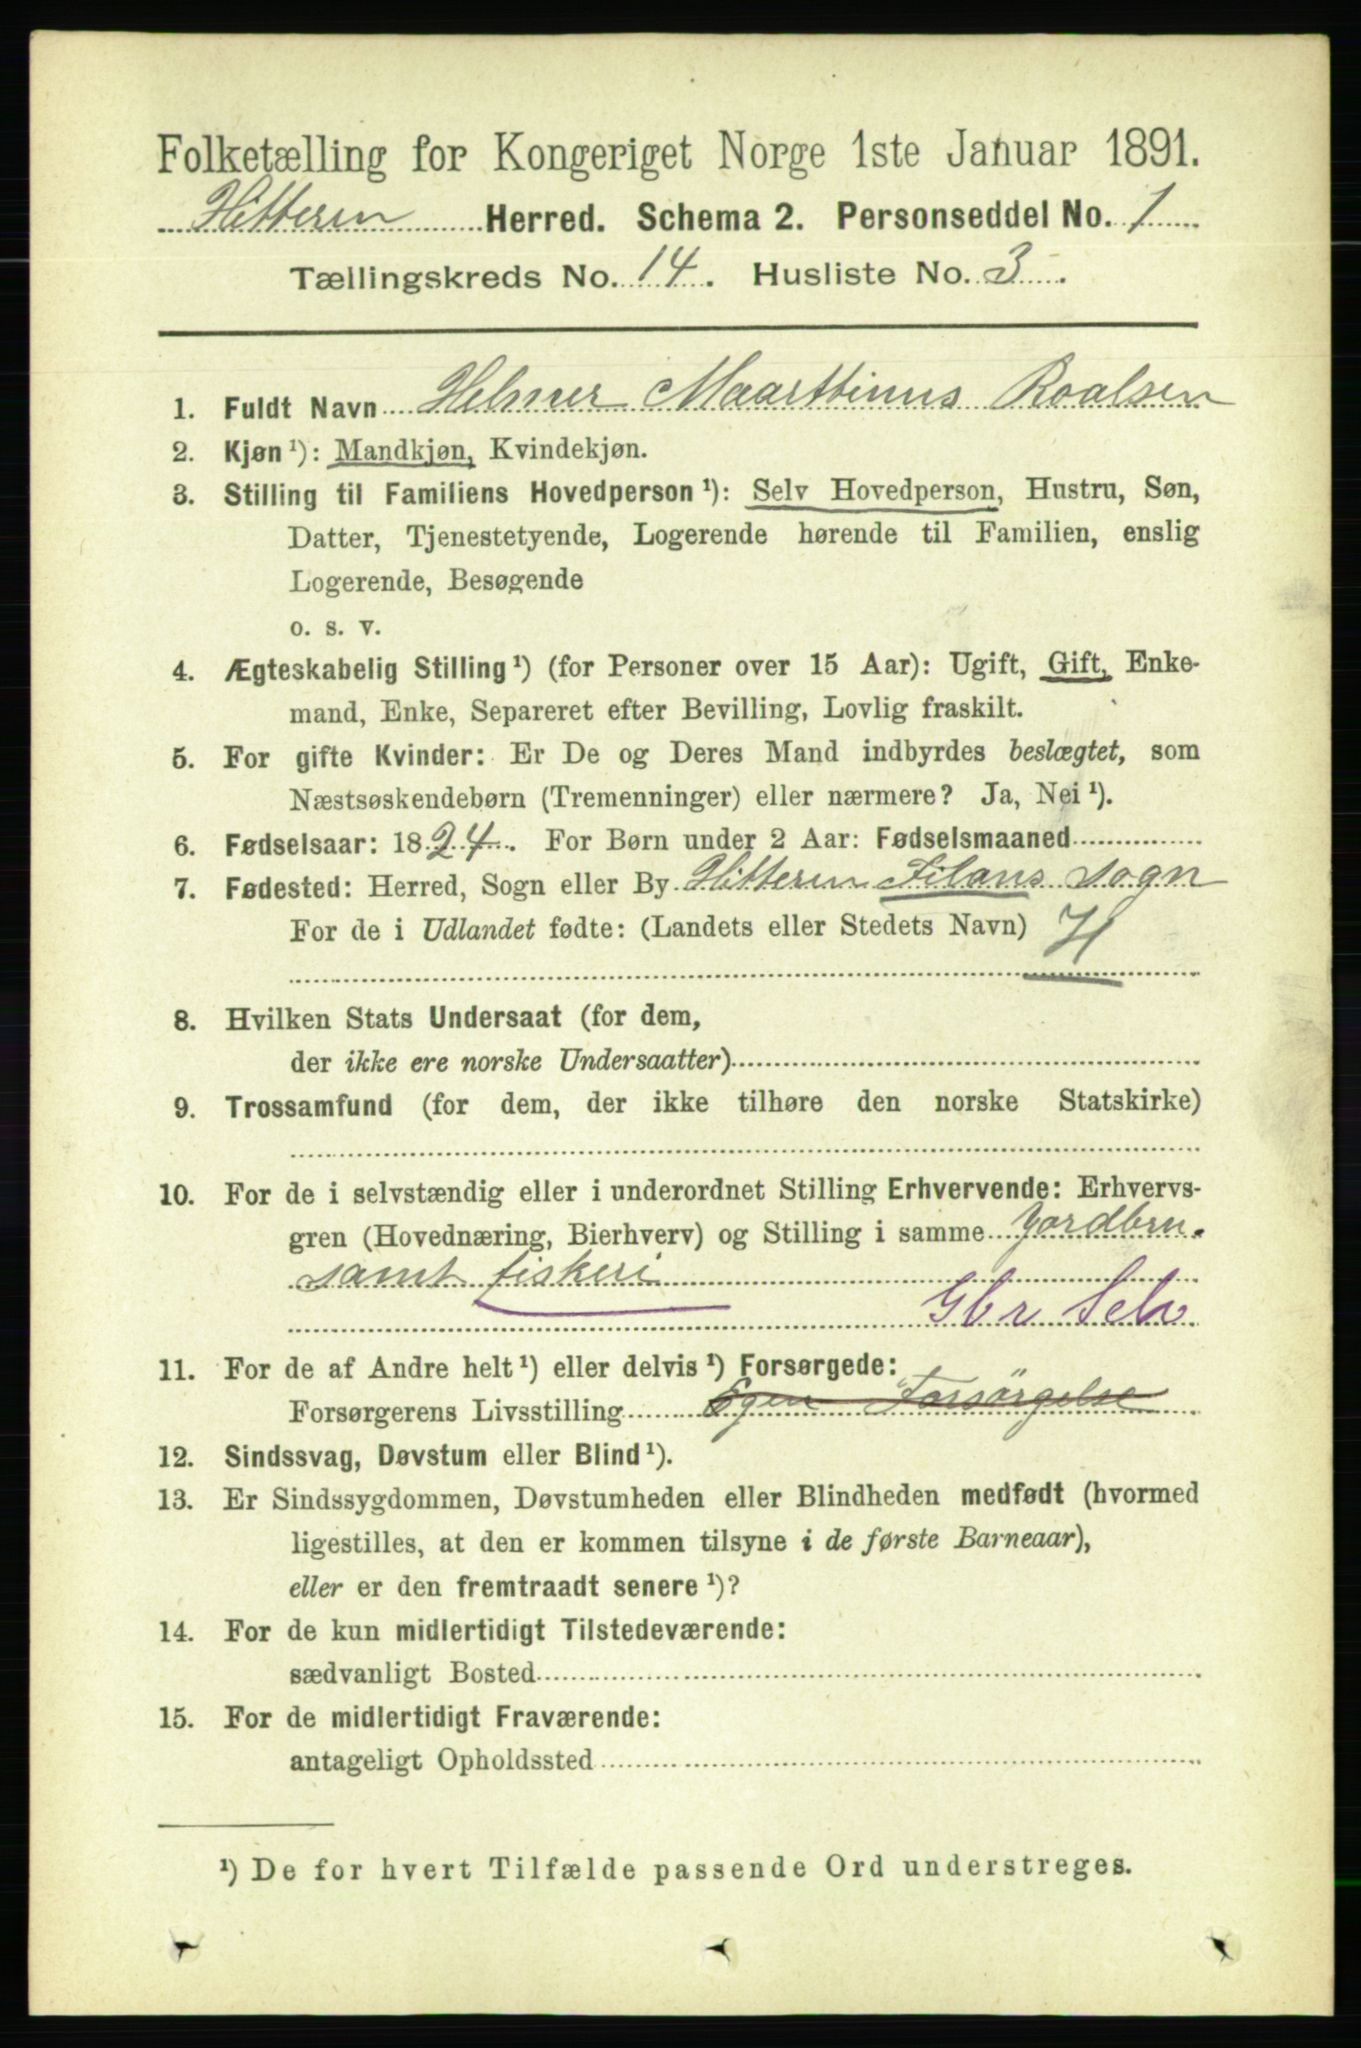 Folketælling for Kongeriget Norge 1ste Januar 1891.
Hitteren Herred. Schema 2. Personseddel No. 1
Tællingskreds No. 14. Husliste No. 3.
1. Fuldt Navn Helmer Maarttinus Roalsen
2. Kjøn ¹): Mandkjøn, Kvindekjøn.
3. Stilling til Familiens Hovedperson ¹): Selv Hovedperson, Hustru, Søn,
Datter, Tjenestetyende, Logerende hørende til Familien, enslig
Logerende, Besøgende
o. s. v.
4. Ægteskabelig Stilling ¹) (for Personer over 15 Aar): Ugift, Gift, Enke-
mand, Enke, Separeret efter Bevilling, Lovlig fraskilt.
5. For gifte Kvinder: Er De og Deres Mand indbyrdes beslægtet, som
Næstsøskendebørn (Tremenninger) eller nærmere? Ja, Nei ¹).
6. Fødselsaar: 1824. For Børn under 2 Aar: Fødselsmaaned
7. Fødested: Herred, Sogn eller By Hitteren Filans Sogn
For de i Udlandet fødte: (Landets eller Stedets Navn) H
8. Hvilken Stats Undersaat (for dem,
der ikke ere norske Undersaatter)
9. Trossamfund (for dem, der ikke tilhøre den norske Statskirke)
10. For de i selvstændig eller i underordnet Stilling Erhvervende: Erhvervs-
gren (Hovednæring, Bierhverv) og Stilling i samme Jordbru.
samt fiskeri
Gbr Selv
11. For de af Andre helt ¹) eller delvis ¹) Forsørgede:
Forsørgerens Livsstilling Egen Forsörgelse
12. Sindssvag, Døvstum eller Blind ¹).
13. Er Sindssygdommen, Døvstumheden eller Blindheden medfødt (hvormed
ligestilles, at den er kommen tilsyne i de første Barneaar),
eller er den fremtraadt senere ¹)?
14. For de kun midlertidigt Tilstedeværende:
sædvanligt Bosted
15. For de midlertidigt Fraværende:
antageligt Opholdssted
¹) De for hvert Tilfælde passende Ord understreges.